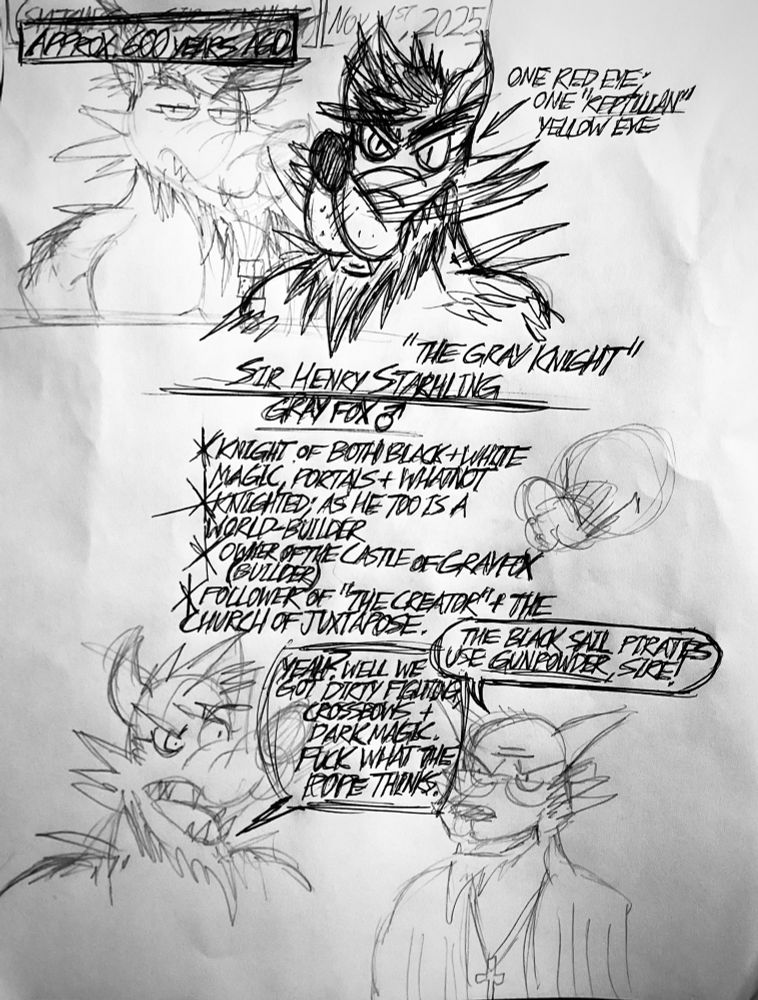 Nov 1st, 2025
APPROX. 600 YEARS AGO
ONE RED EYE;
ONE "REPTILIAN"
YELLOW EYE
"THE GRAY KNIGHT"
SIR HENRY STARHLING
GRAY FOX ♂
* KNIGHT OF BOTH BLACK + WHITE
MAGIC, PORTALS + WHATNOT
* KNIGHTED; AS HE TOO IS A
WORLD-BUILDER
* OWNER OF THE CASTLE OF GRAYFOX
(BUILDER)
* FOLLOWER OF "THE CREATOR" + THE
CHURCH OF JUXTAPOSE.
THE BLACK SAIL PIRATES
USE GUNPOWDER, SIRE!
YEAH? WELL WE
GOT DIRTY FIGHTING,
CROSSBOWS +
DARK MAGIC.
FUCK WHAT THE
POPE THINKS.